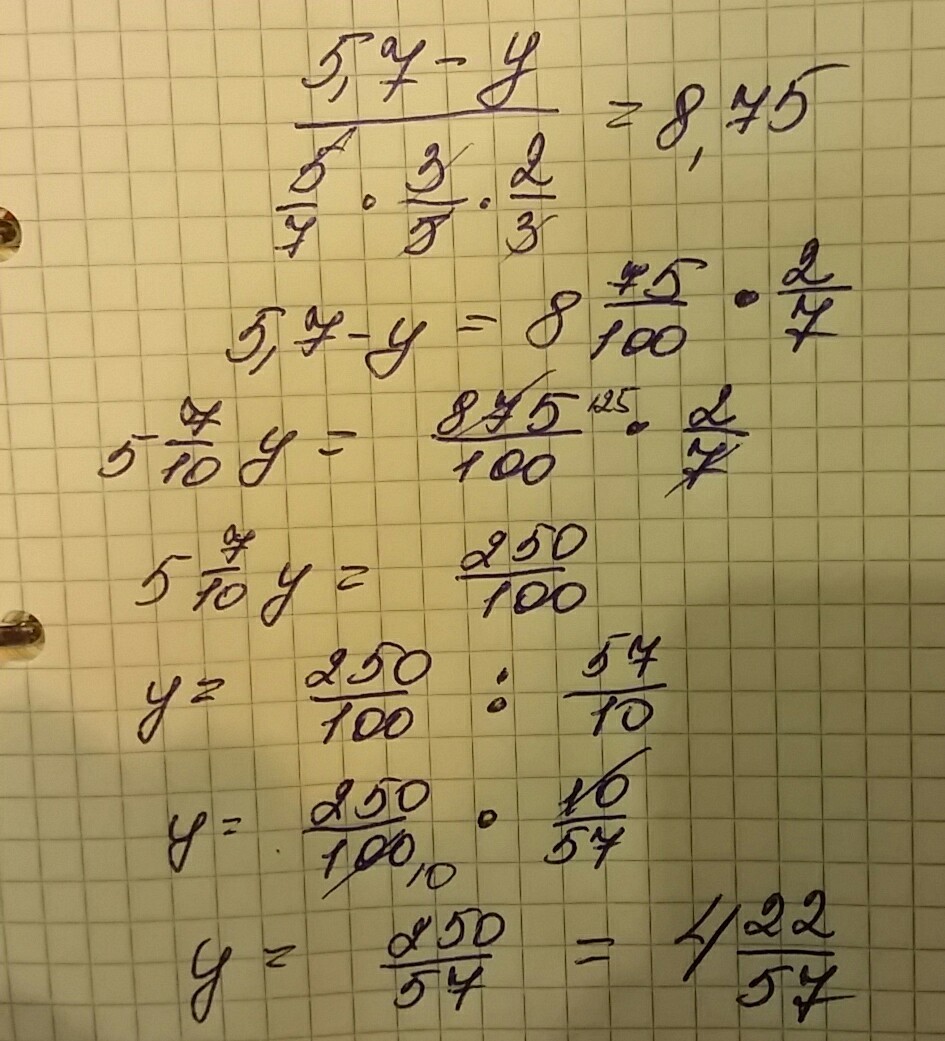 (5,7 - y) / (5/7 · 3/5 · 2/3) = 8,75
5,7 - y = 8 75/100 · 2/7
5 7/10 y = 875/100 125 · 2/7
5 7/10 y = 250/100
y = 250/100 : 57/10
y = 250/100 10 · 10/57
y = 250/57 = 4 22/57